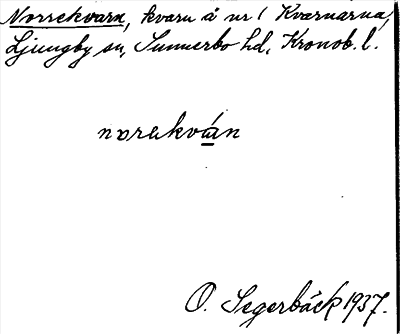 Norrekvarn, kvarn å nr 1 Kvarnarna,
Ljungby sn, Sunnerbo hd, Kronob. l.
norəkván
O. Segerbäck 1937.